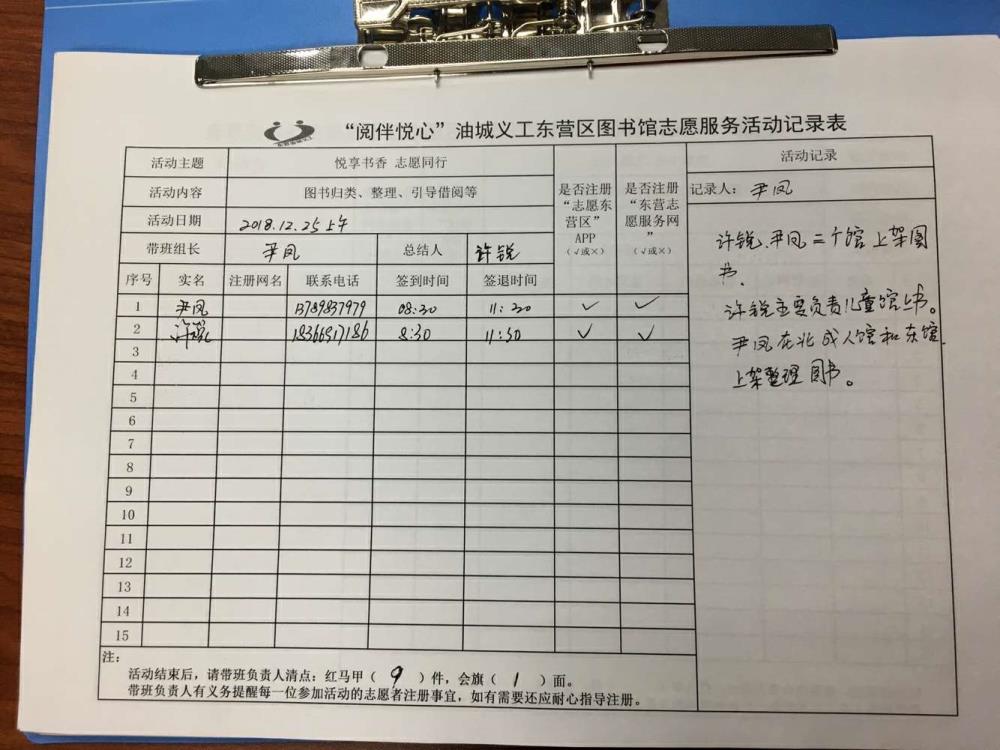 “阅伴悦心”油城义工东营区图书馆志愿服务活动记录表
活动主题 悦享书香 志愿同行
活动内容 图书归类、整理、引导借阅等
活动日期 2018.12.25上午
带班组长 尹凤 总结人 许锐
是否注册“志愿东营区”APP（√或×）
是否注册“东营志愿服务网”（√或×）
序号 实名 注册网名 联系电话 签到时间 签退时间
1 尹凤 13789837979 08:30 11:30 ✓ ✓
2 许锐 18366917186 8:30 11:30 ✓ ✓
3
4
5
6
7
8
9
10
11
12
13
14
15
活动记录
记录人：尹凤
许锐、尹凤二个馆上架图
书.
许锐主要负责儿童馆上书。
尹凤在北成人馆和东馆
上架整理图书。
注：
活动结束后，请带班负责人清点：红马甲（ 9 ）件，会旗（ 1 ）面。
带班负责人有义务提醒每一位参加活动的志愿者注册事宜，如有需要还应耐心指导注册。